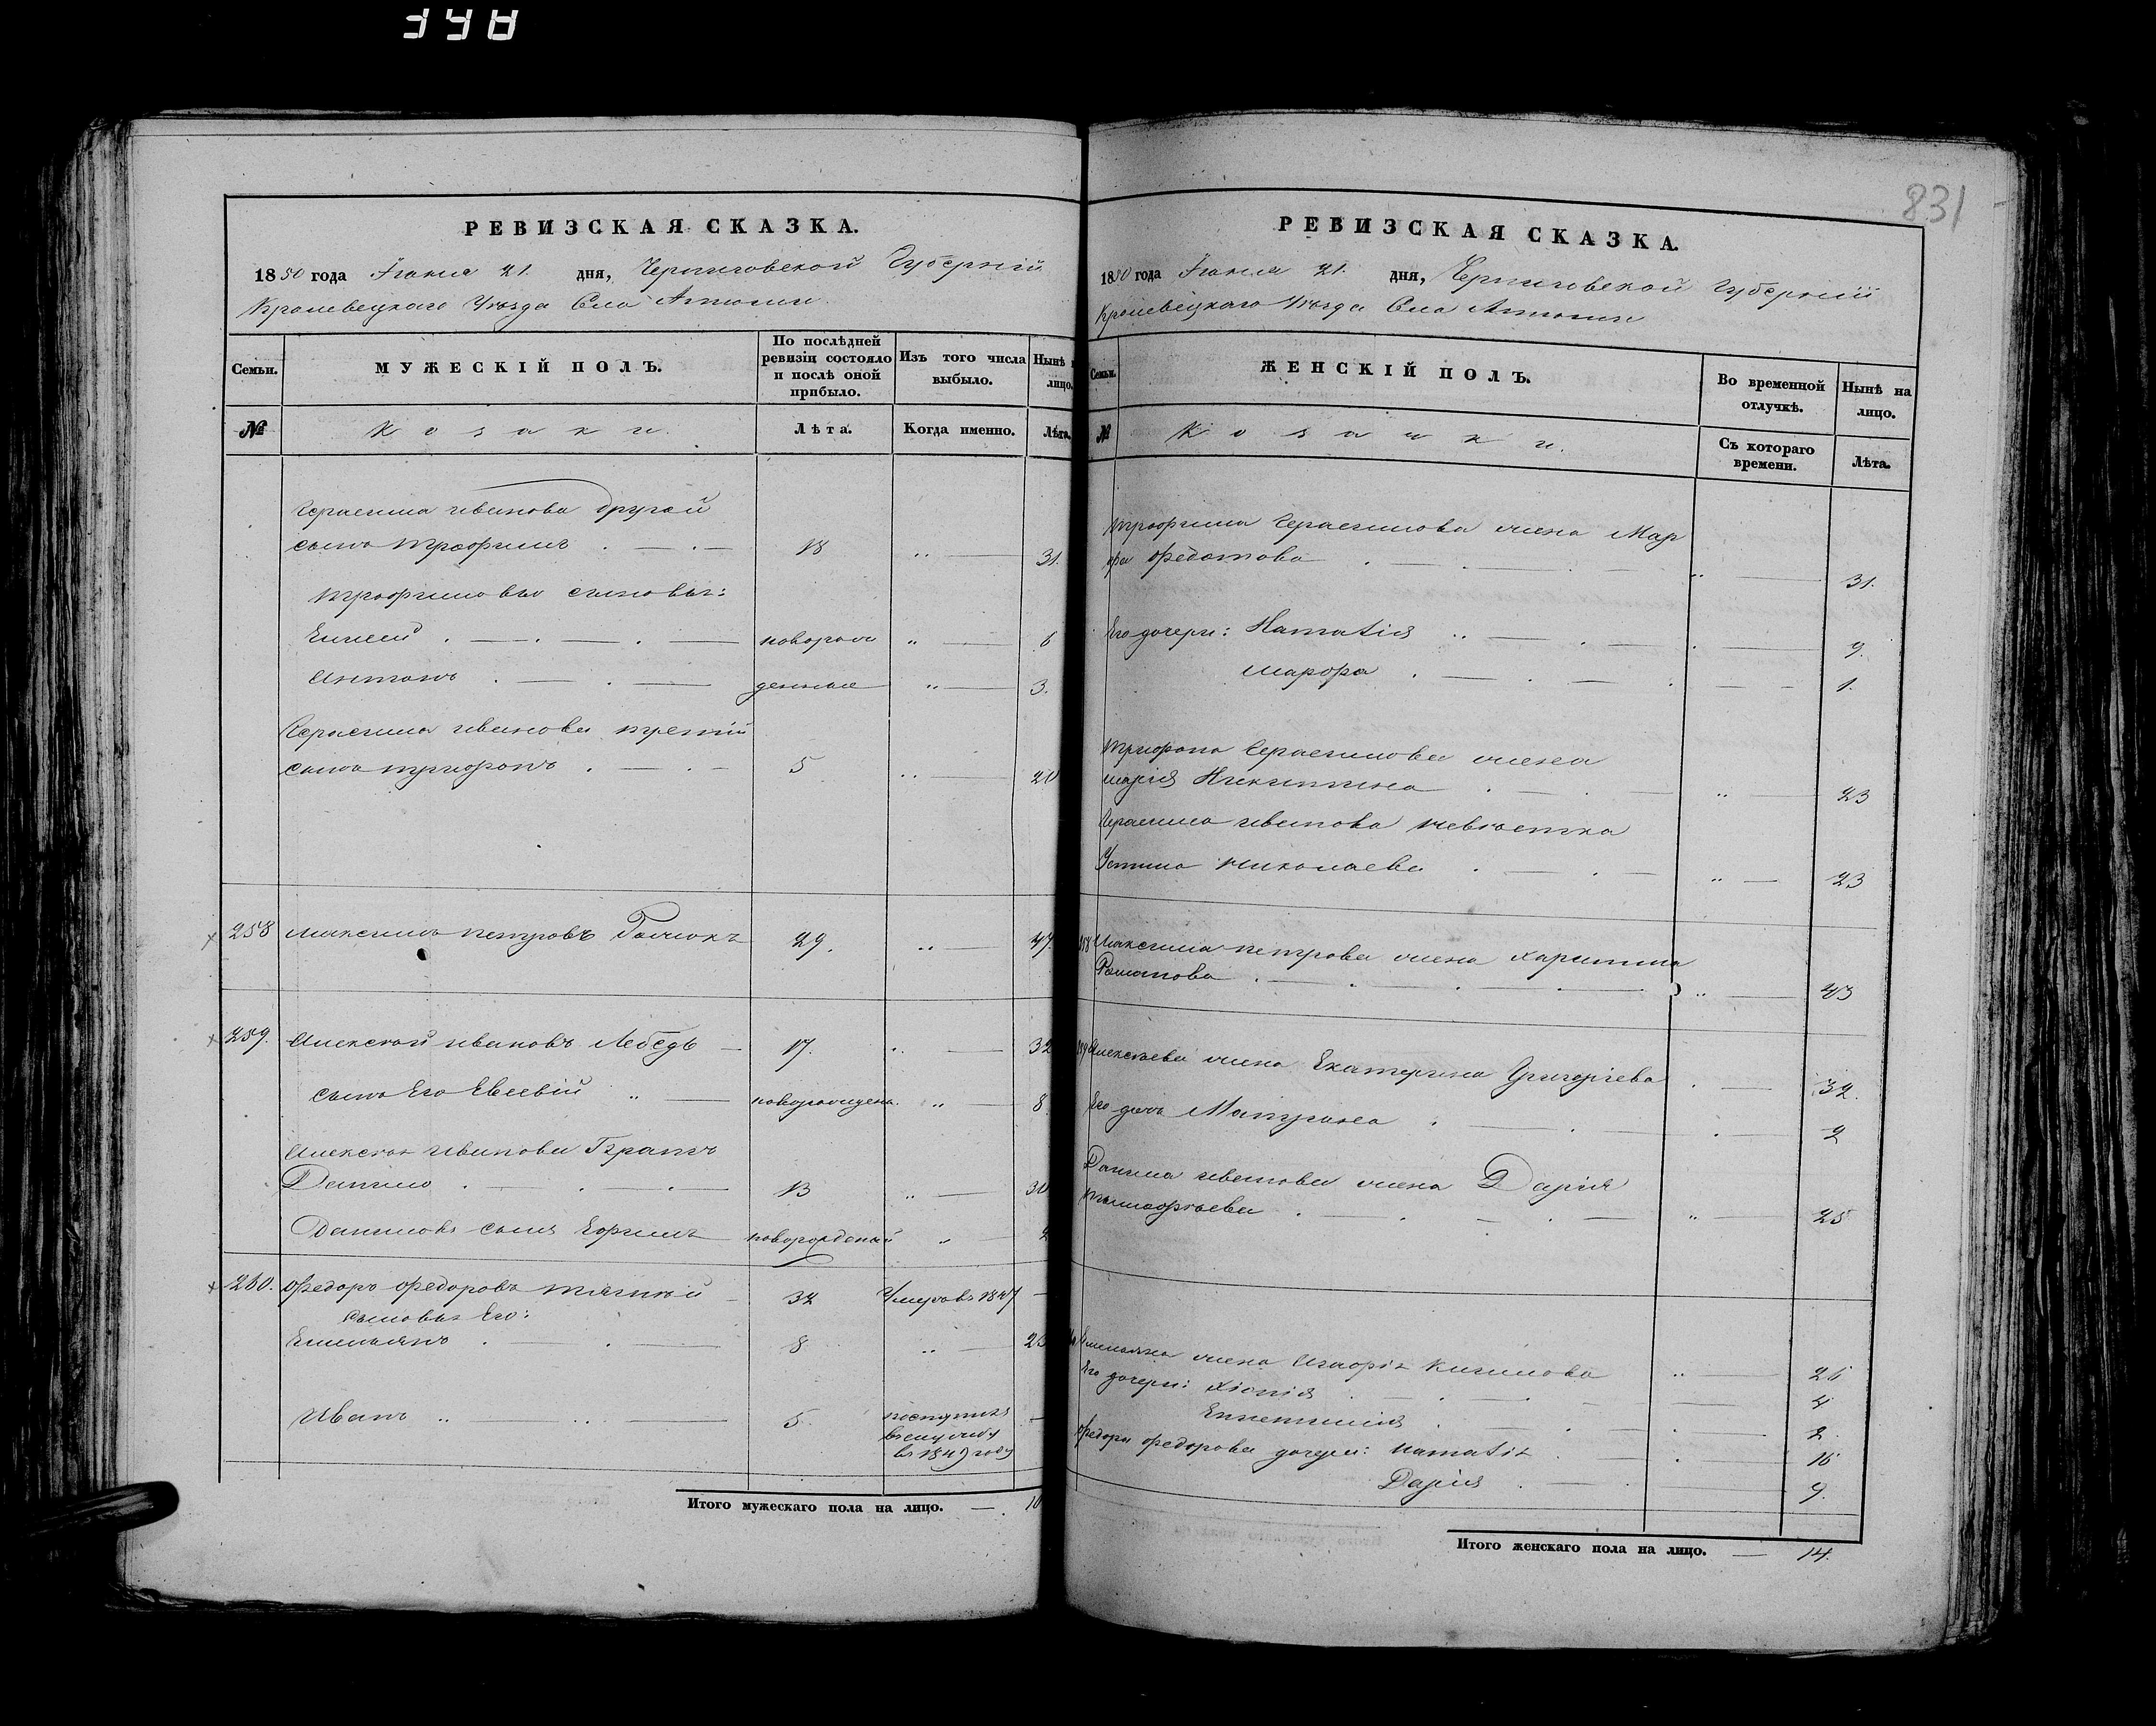 831
РЕВИЗСКАЯ СКАЗКА.
1850 года Іюня 21. дня, Черниговской Губерніи
Кролевецкаго Уѣзда
Семьи.
МУЖЕСКІЙ ПОЛЪ.
По послѣдней ревизіи состояло и послѣ оной прибыло.
Изъ того числа выбыло.
Нынѣ лицо.
№
Козаки.
Лѣта.
Когда именно.
Лѣта.
Герасима Иванова другой
сынъ Трофимъ 18 31.
Трофимовы сыновья:
6
Антонъ денные 3.
Герасима Иванова третій
сынъ Трифонъ 5 20
258 Максимъ Петровъ 29. 47.
259. Алексѣй Ивановъ Лебедь 17. 32
сынъ Его Евсевій новорожден. 8.
Алексѣя Иванова братъ
Данило 13 30
Даниловъ сынъ Ефимъ новорожденый 2
260. Федоръ Федоровъ 32 Умеръ въ 1847
сыновья Его:
Емельянъ 8
Иванъ 5. поступилъ
въ службу
въ 1849 году
Итого мужескаго пола на лицо. 10
РЕВИЗСКАЯ СКАЗКА.
1850 года Іюня 21. дня, Черниговской Губерніи
Кролевецкаго Уѣзда
Семьи.
ЖЕНСКІЙ ПОЛЪ.
Во временной отлучкѣ.
Нынѣ на лицо.
№
Козачки.
Съ котораго времени.
Лѣта.
Трофима Герасимова жена Мар
фа Федотова 31.
Его дочери: Наталія 9.
Марфа 1.
Трифона Герасимова жена
Марія Никитина 23
Герасима Иванова невѣстка
Устина Николаева 23
258 Максима Петрова жена Харитина
Романова 43
259 Алексѣева жена Екатерина Григоріева 32.
Его дочь Матрона 2
Данила Иванова жена Дарія
Тимофѣева 25
Емельяна жена 26
Его дочери: Хіонія 4
2.
Федора Федорова дочери: Наталія 16
Дарія 9.
Итого женскаго пола на лицо. 14.